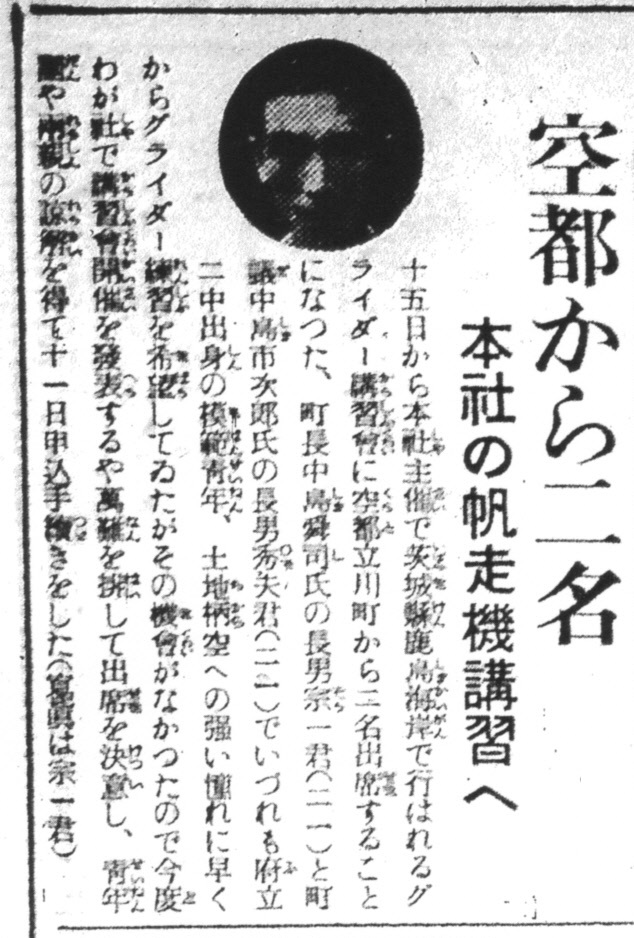 空都から二名
本社の帆走機講習へ
十五日から本社主催で茨城縣鹿島海岸で行はれるグ
ライダー講習會に空都立川町から二名出席すること
になつた、町長中島舜司氏の長男宗一君(二一)と町
議中島市次郎氏の長男秀夫君(二二)でいづれも府立
二中出身の模範青年、土地柄空への强い憧れに早く
からグライダー練習を希望してゐたがその機會がなかつたので今度
わが社で講習會開催を發表するや萬難を排して出席を決意し、靑年
や兩親の諒解を得て十一日申込手續きをした(寫眞は宗一君)